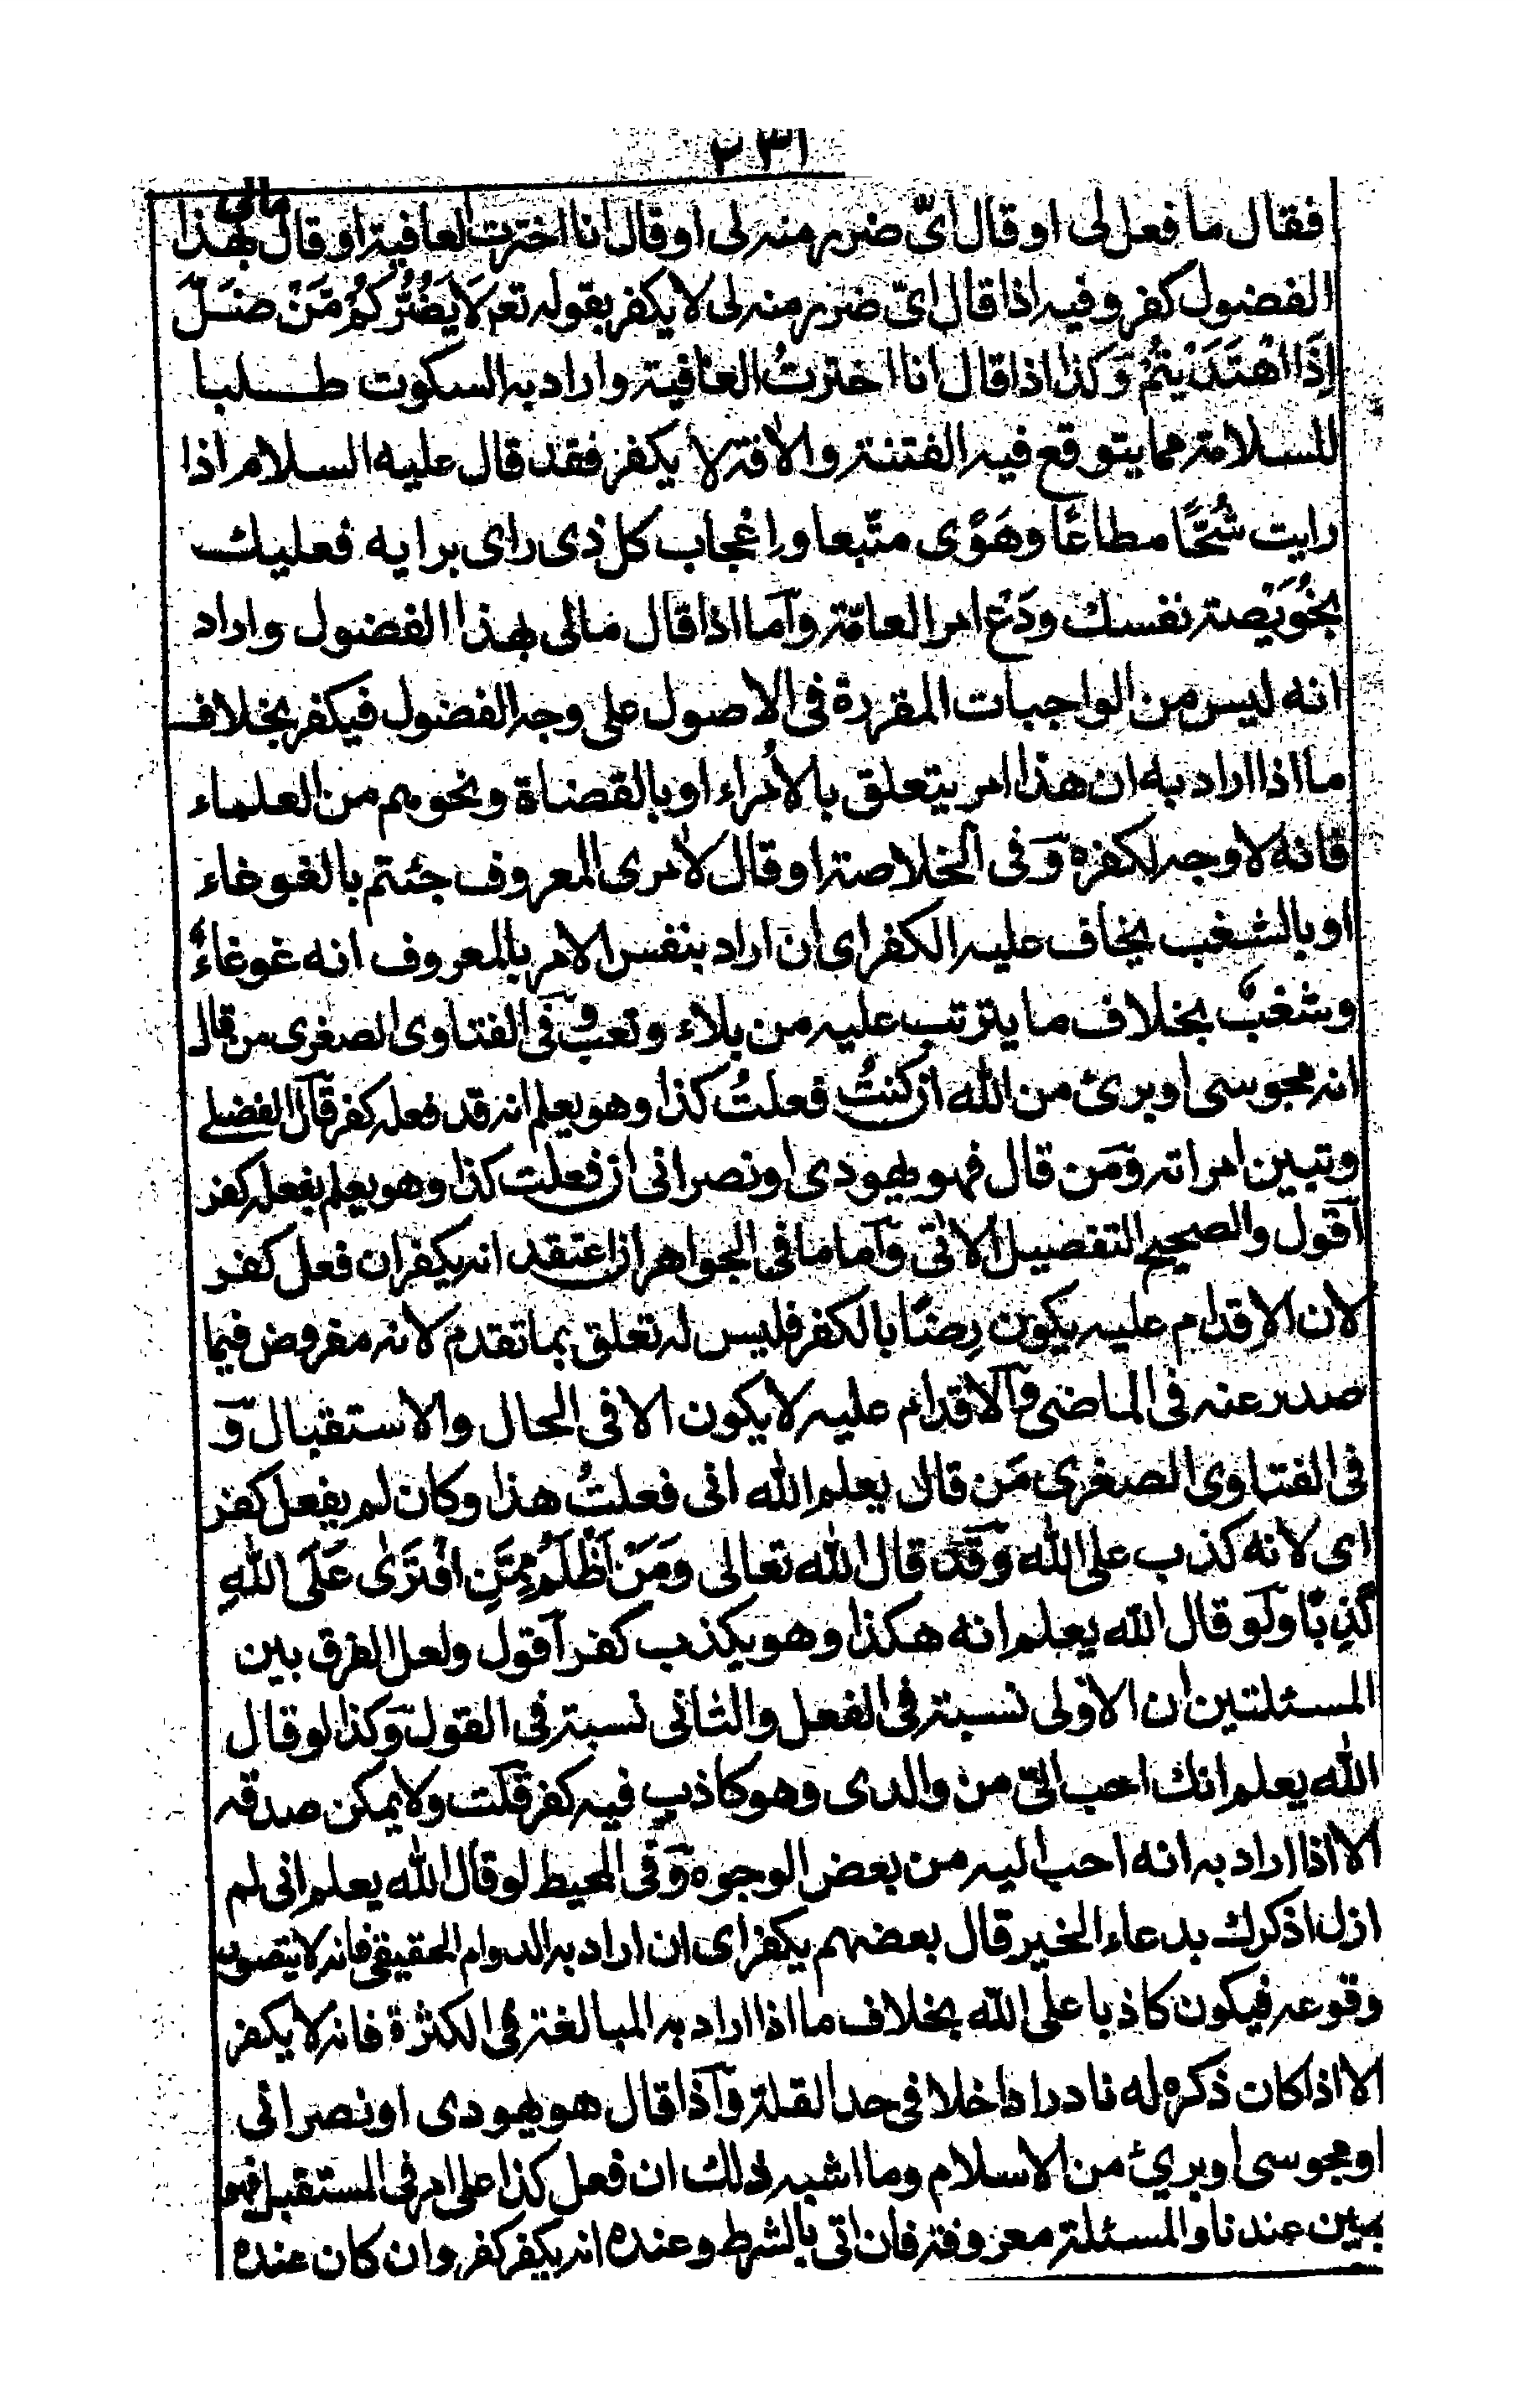 ٢٣١
فقال ما فعل لى او قال اىّ ضرر منه لى او قال انا اخترت العافية او قال مالى بهذا
الفضول كفر وفيه اذا قال اىّ ضرر منه لى لا يكفر بقوله تعم لَا يَضُرُّكُمْ مَّنْ ضَلَّ
اِذَا اهْتَدَيْتُمْ وَكذا اذا قال انا اخترتُ العافية واراد به السكوت طلبا
للسلامة مما يتوقع فيه الفتنة والأفة لا يكفر فقد قال عليه السلام اذا
رايت شُحًّا مطاعًا وهَوًى متّبعا واِعْجاب كل ذى راى برايه فعليك
بخُوَيْصة نفسك ودَعْ امر العامّة وآما اذا قال مالى بهذا الفضول واراد
انه ليس من الواجبات المقررة فى الاصول على وجه الفضول فيكفر بخلاف
ما اذا اراد به ان هذا امر يتعلق بالأمراء او بالقضاة ونحوهم من العلماء
فانه لا وجه لكفره وَفى الخلاصة او قال لأمرى المعروف جئتم بالغوغاء
او بالشغب يخاف عليه الكفر اى ان اراد بنفس الامر بالمعروف انه غوغاءٌ
وشغبٌ بخلاف ما يترتب عليه من بلاء وتعب وَفى الفتاوى الصغرى من قال
انه مجوسى او برئ من الله ان كنتُ فعلتُ كذا وهو يعلم انه قد فعله كفر قآل الفضلى
وتبين امراته وَمَن قال فهو يهودى او نصرانى ان فعلت كذا وهو يعلم بفعله كفر
آقول والصحيح التفصيل الأتى وآما ما فى الجواهر ان اعتقد انه يكفر ان فعل كفر
لان الاقدام عليه يكون رِضًا بالكفر فليس له تعلق بما تقدم لانه مفروض فيما
صدر عنه فى الماضى وآلاقدام عليه لا يكون الا فى الحال والاستقبال وَ
فى الفتاوى الصغرى مَن قال يعلم الله انى فعلتُ هذا وكان لم يفعل كفر
اى لانه كذب على الله وَقَد قال الله تعالى وَمَنْ اَظْلَمُ مِمَّنِ افْتَرٰى عَلَى اللّٰهِ
كَذِبًا وَلو قال الله يعلم انه هكذا وهو يكذب كفر آقول ولعل الفرق بين
المسئلتين ان الاولى نسبة فى الفعل والثانى نسبة فى القول وَكذا لو قال
الله يعلم انك احب الىّ من والدى وهو كاذب فيه كفر قلت ولا يمكن صدقه
الا اذا اراد به انه احب اليه من بعض الوجوه وَفى المحيط لو قال الله يعلم انى لم
ازل اذكرك بدعاء الخير قال بعضهم يكفر اى ان اراد به الدوام الحقيقى فانه لا يتصور
وقوعه فيكون كاذبا على الله بخلاف ما اذا اراد به المبالغة فى الكثرة فانه لا يكفر
الا اذا كان ذكره له نادرا داخلا فى حد القلة وآذا قال هو يهودى او نصرانى
او مجوسى او برئ من الاسلام وما اشبه ذلك ان فعل كذا على امر فى المستقبل فهو
يمين عندنا والمسئلة معروفة فان اتى بالشرط وعنده انه يكفر كفر وان كان عنده